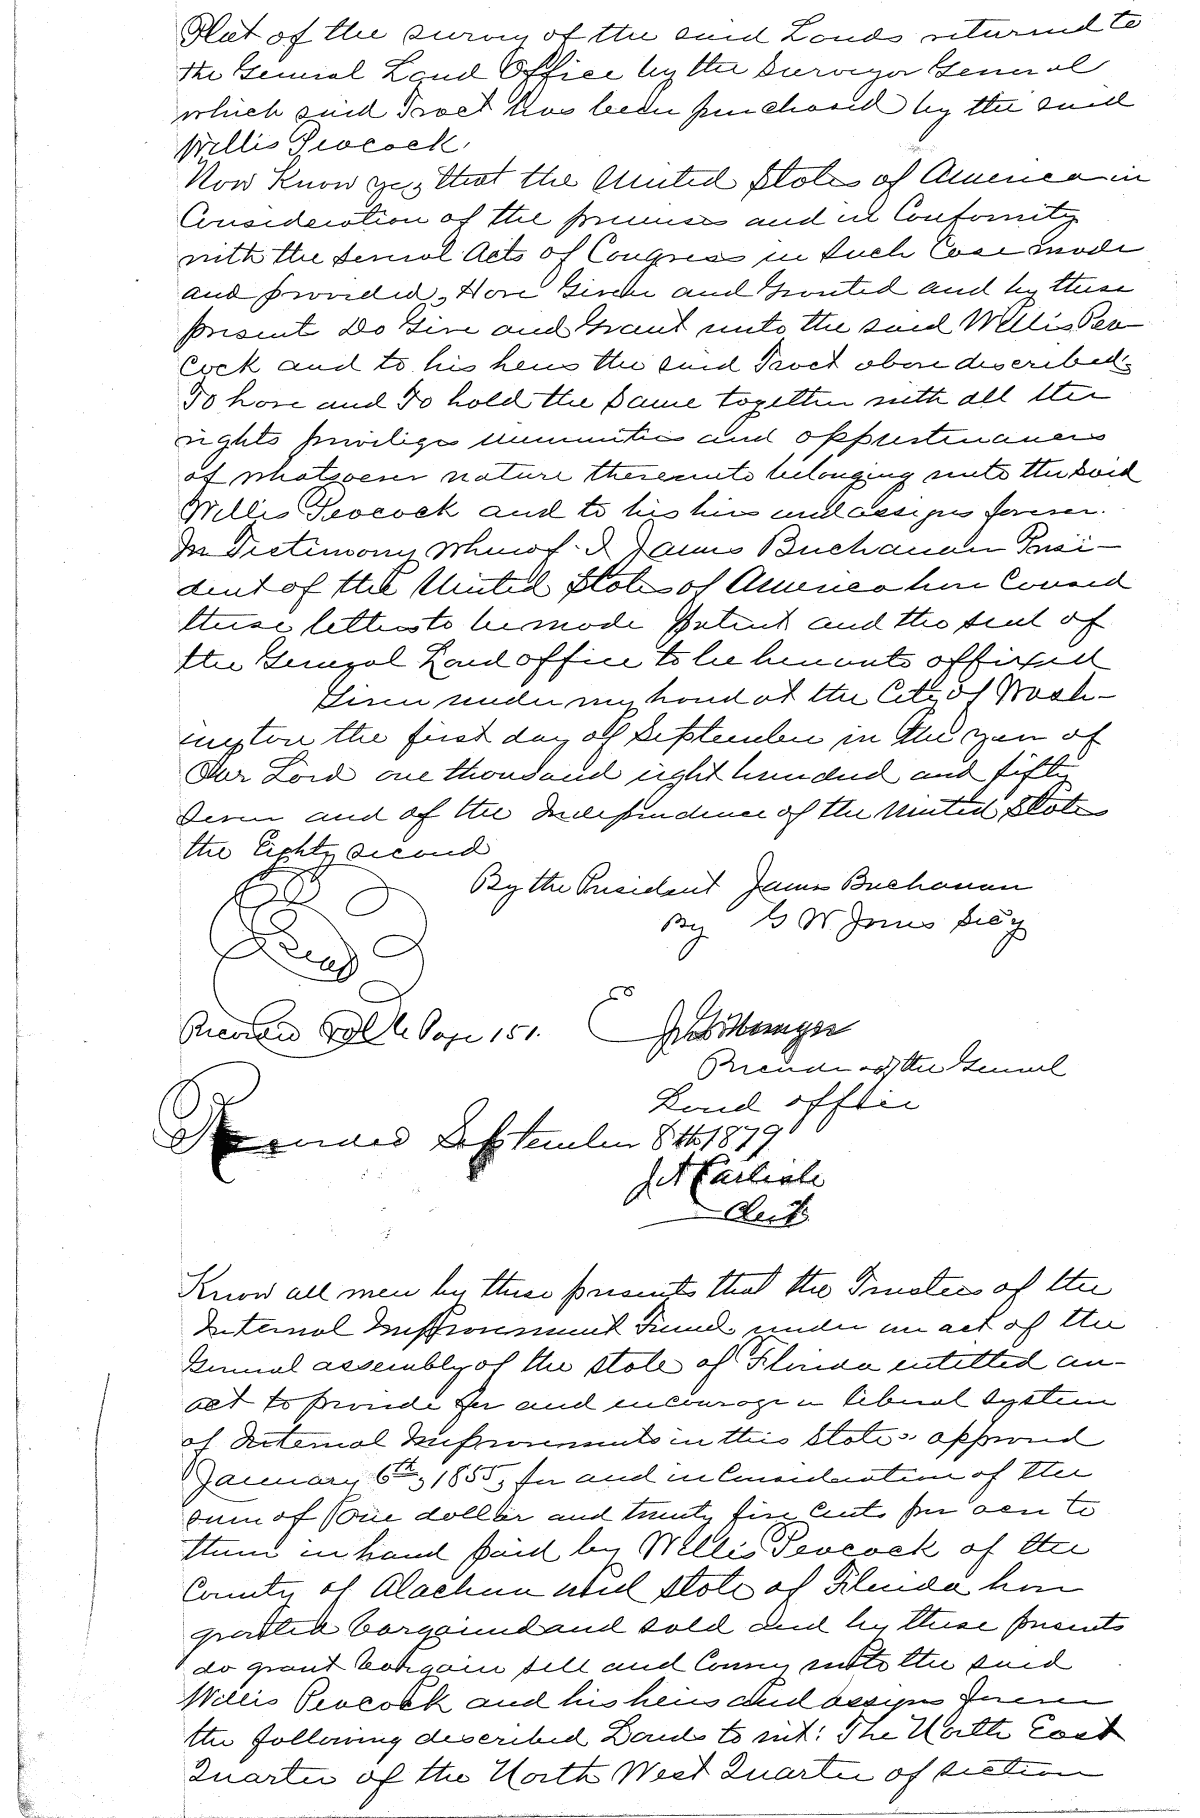 Plat of the survey of the said Lands returned to
the General Land Office by the Surveyor General
which said Tract has been purchased by the said
Willis Peacock.
Now Know ye, that the United States of America in
Consideration of the premises and in Conformity
with the several Acts of Congress in Such Case made
and provided, Have Given and Granted and by these
present Do Give and Grant unto the said Willis Pea
cock and to his heirs the said Tract above described
To have and To hold the Same together with all the
rights priviliges immunities and appurtenances
of whatsoever nature thereunto belonging unto the said
Willis Peacock and to his heirs and assigns forever.
In Testimony Whereof I James Buchanan Presi-
dent of the United States of America have Caused
these letters to be made Patent and the seal of
the General Land office to be hereunto affixed
Given under my hand at the City of Wash-
ington the first day of September in the year of
Our Lord one thousand eight hundred and fifty
seven and of the Independence of the United States
the Eighty second
By the President James Buchanan
By G W Jones Secy
Seal
Recorded Vol Page 151.
Recorder of the General
Land office
Recorded September 8th 1879
J A Carlisle
Clerk
Know all men by these presents that the Trustees of the
Internal Improvement Fund under an act of the
General assembly of the state of Florida entitled an-
act to provide for and encourage a liberal system
of Internal Improvements in this State, approved
January 6th, 1855, for and in Consideration of the
sum of one dollar and twenty five Cents per acre to
them in hand paid by Willis Peacock of the
County of Alachua and State of Florida have
granted bargained and sold and by these presents
do grant bargain sell and Convey unto the said
Willis Peacock and his heirs and assigns forever
the following described Lands to wit: The North East
Quarter of the North West Quarter of section